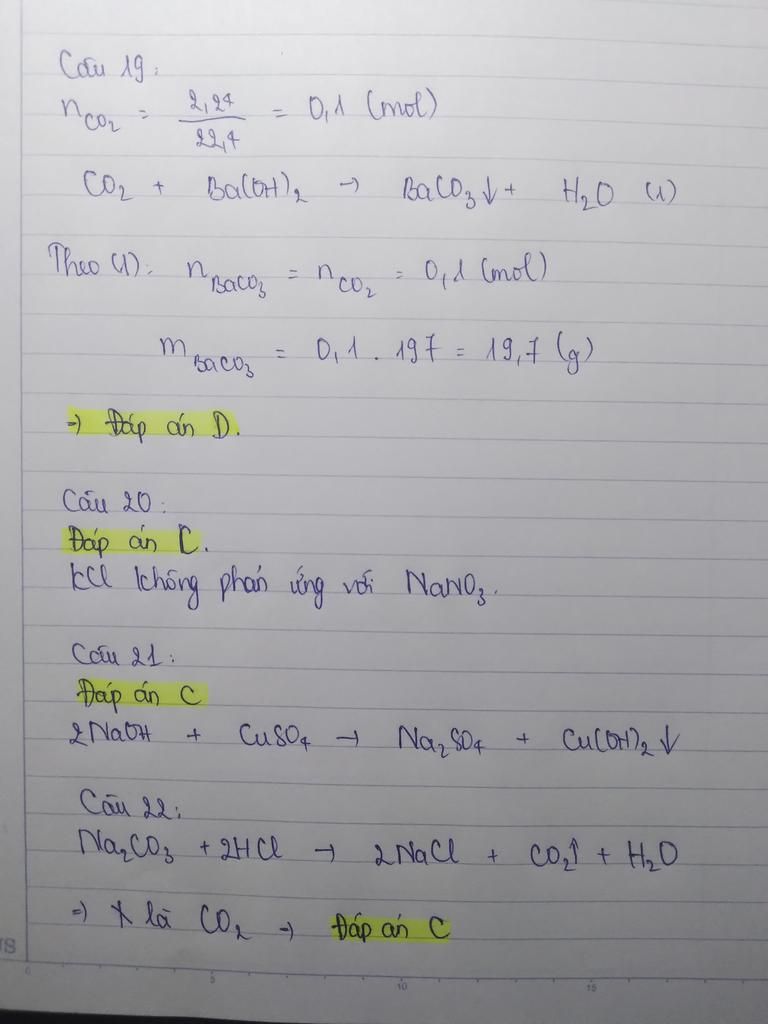 Câu 19:
n CO₂ = 2,24 / 22,4 = 0,1 (mol)
CO₂ + Ba(OH)₂ → BaCO₃↓ + H₂O (1)
Theo (1): n BaCO₃ = n CO₂ = 0,1 (mol)
m BaCO₃ = 0,1 . 197 = 19,7 (g)
⇒ Đáp án D.
Câu 20:
Đáp án C.
KCl không phản ứng với NaNO₃.
Câu 21:
Đáp án C
2NaOH + CuSO₄ → Na₂SO₄ + Cu(OH)₂↓
Câu 22:
Na₂CO₃ + 2HCl → 2NaCl + CO₂↑ + H₂O
⇒ X là CO₂ → Đáp án C
0 5 10 15